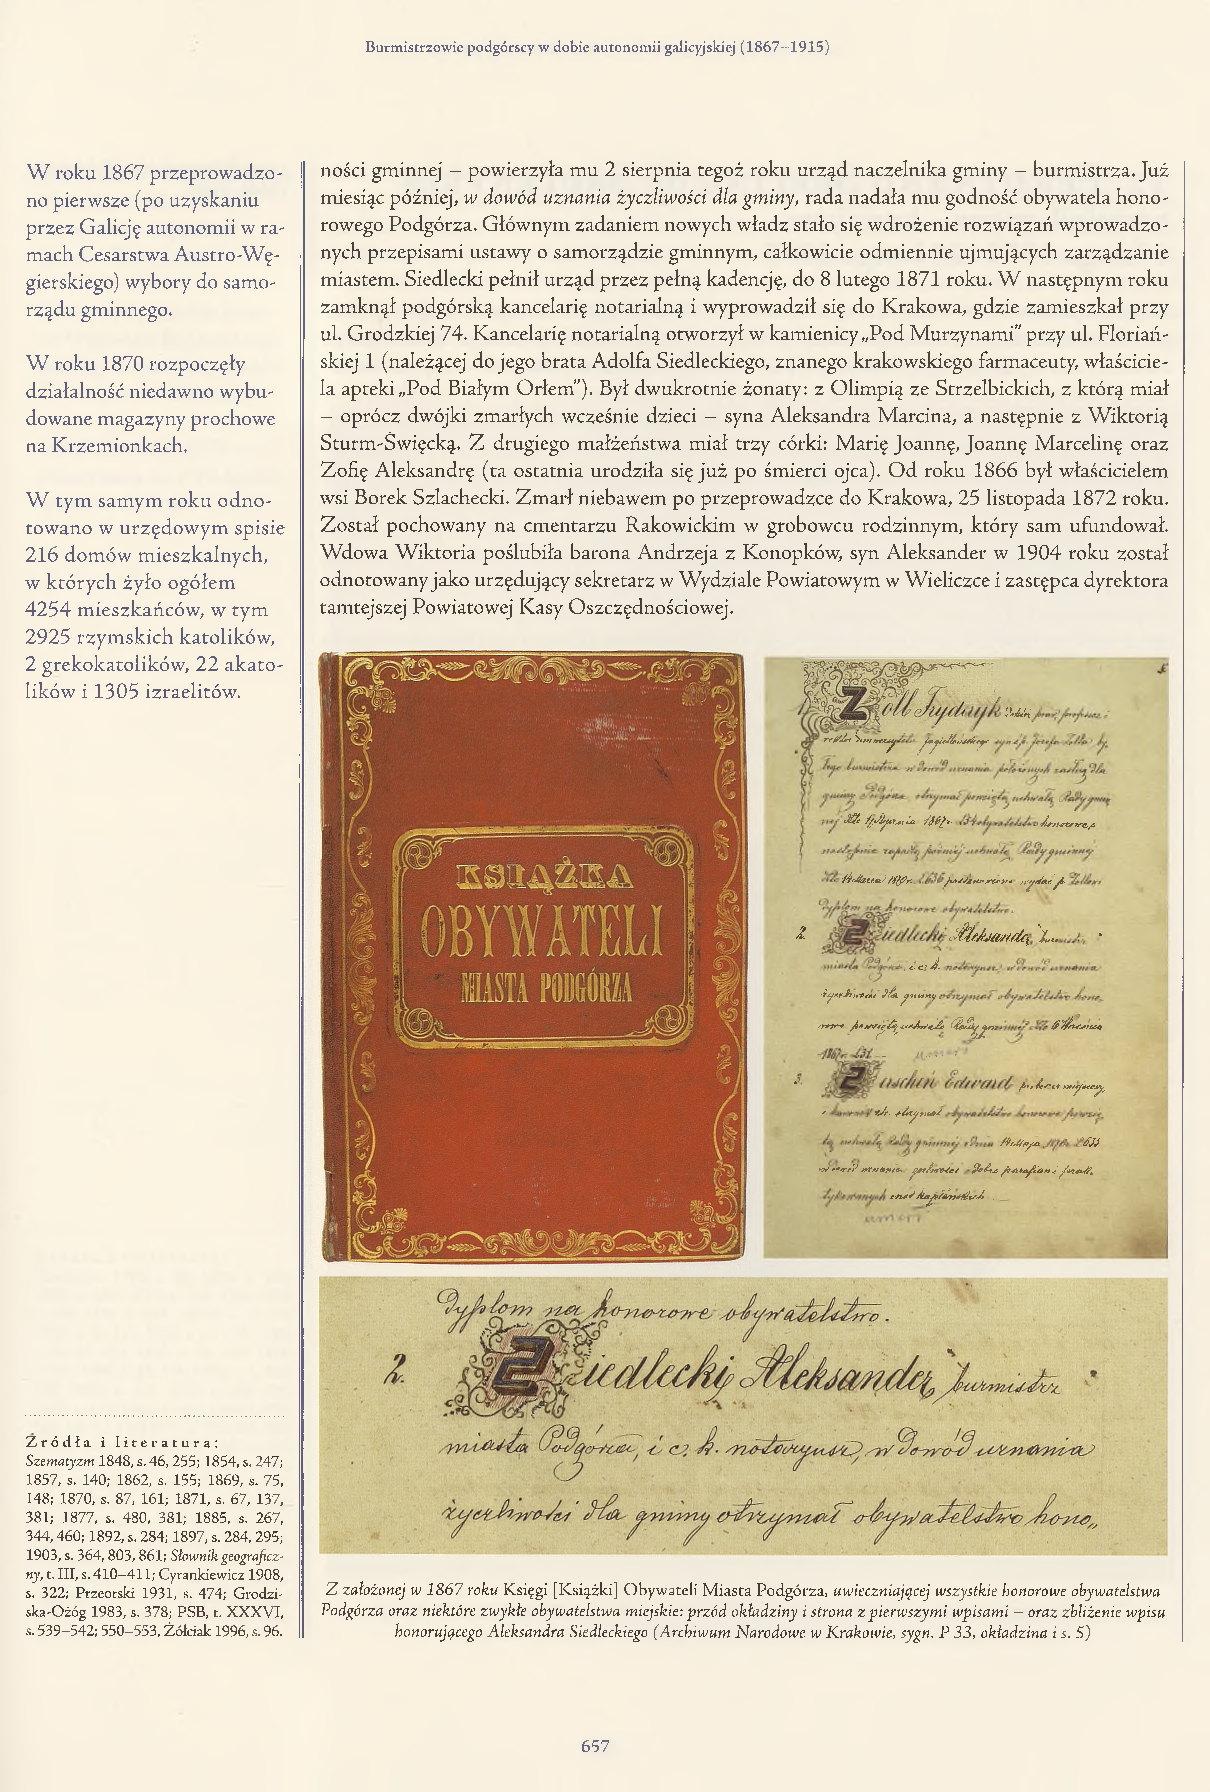 Burmistrzowie podgórscy w dobie autonomii galicyjskiej (1867–1915)
W roku 1867 przeprowadzo-
no pierwsze (po uzyskaniu
przez Galicję autonomii w ra-
mach Cesarstwa Austro-Wę-
gierskiego) wybory do samo-
rządu gminnego.
W roku 1870 rozpoczęły
działalność niedawno wybu-
dowane magazyny prochowe
na Krzemionkach.
W tym samym roku odno-
towano w urzędowym spisie
216 domów mieszkalnych,
w których żyło ogółem
4254 mieszkańców, w tym
2925 rzymskich katolików,
2 grekokatolików, 22 akato-
lików i 1305 izraelitów.
Źródła i literatura:
Szematyzm 1848, s. 46, 255; 1854, s. 247;
1857, s. 140; 1862, s. 155; 1869, s. 75,
148; 1870, s. 87, 161; 1871, s. 67, 137,
381; 1877, s. 480, 381; 1885, s. 267,
344, 460; 1892, s. 284; 1897, s. 284, 295;
1903, s. 364, 803, 861; Słownik geograficz-
ny, t. III, s. 410–411; Cyrankiewicz 1908,
s. 322; Przeorski 1931, s. 474; Grodzi-
ska-Ożóg 1983, s. 378; PSB, t. XXXVI,
s. 539–542; 550–553, Żółciak 1996, s. 96.
ności gminnej – powierzyła mu 2 sierpnia tegoż roku urząd naczelnika gminy – burmistrza. Już
miesiąc później, w dowód uznania życzliwości dla gminy, rada nadała mu godność obywatela hono-
rowego Podgórza. Głównym zadaniem nowych władz stało się wdrożenie rozwiązań wprowadzo-
nych przepisami ustawy o samorządzie gminnym, całkowicie odmiennie ujmujących zarządzanie
miastem. Siedlecki pełnił urząd przez pełną kadencję, do 8 lutego 1871 roku. W następnym roku
zamknął podgórską kancelarię notarialną i wyprowadził się do Krakowa, gdzie zamieszkał przy
ul. Grodzkiej 74. Kancelarię notarialną otworzył w kamienicy „Pod Murzynami” przy ul. Floriań-
skiej 1 (należącej do jego brata Adolfa Siedleckiego, znanego krakowskiego farmaceuty, właścicie-
la apteki „Pod Białym Orłem”). Był dwukrotnie żonaty: z Olimpią ze Strzelbickich, z którą miał
– oprócz dwójki zmarłych wcześnie dzieci – syna Aleksandra Marcina, a następnie z Wiktorią
Sturm-Święcką. Z drugiego małżeństwa miał trzy córki: Marię Joannę, Joannę Marcelinę oraz
Zofię Aleksandrę (ta ostatnia urodziła się już po śmierci ojca). Od roku 1866 był właścicielem
wsi Borek Szlachecki. Zmarł niebawem po przeprowadzce do Krakowa, 25 listopada 1872 roku.
Został pochowany na cmentarzu Rakowickim w grobowcu rodzinnym, który sam ufundował.
Wdowa Wiktoria poślubiła barona Andrzeja z Konopków, syn Aleksander w 1904 roku został
odnotowany jako urzędujący sekretarz w Wydziale Powiatowym w Wieliczce i zastępca dyrektora
tamtejszej Powiatowej Kasy Oszczędnościowej.
KSIĄŻKA
OBYWATELI
MIASTA PODGÓRZA
Zoll Fryderyk
gminy Podgórza otrzymał powziętą uchwałą Rady gmin
nej 1867r. honorowe,
następnie zapadłą później uchwałą Rady gminnej
14 Marca 1870r. L 636 postanowiono wydać p. Zollowi
dyplom na honorowe obywatelstwo.
2. Ziedlecki Aleksander, burmistrz
miasta Podgórza, i c. k. notaryusz, w dowód uznania
życzliwości dla gminy otrzymał obywatelstwo hono„
rowe powziętą uchwałą Rady gminnej dto 6 Września
1867r. L 31.
umarł
3. Edward
otrzymał obywatelstwo honorowe powzię„
tą uchwałą Rady gminnej z dnia
tykowanych cnót kapłańskich
umarł
dyplom na honorowe obywatelstwo.
2. Ziedlecki Aleksander, burmistrz
miasta Podgórza, i c. k. notaryusz, w dowód uznania
życzliwości dla gminy otrzymał obywatelstwo hono„
Z założonej w 1867 roku Księgi [Książki] Obywateli Miasta Podgórza, uwieczniającej wszystkie honorowe obywatelstwa
Podgórza oraz niektóre zwykłe obywatelstwa miejskie: przód okładziny i strona z pierwszymi wpisami – oraz zbliżenie wpisu
honorującego Aleksandra Siedleckiego (Archiwum Narodowe w Krakowie, sygn. P 33, okładzina i s. 5)
657